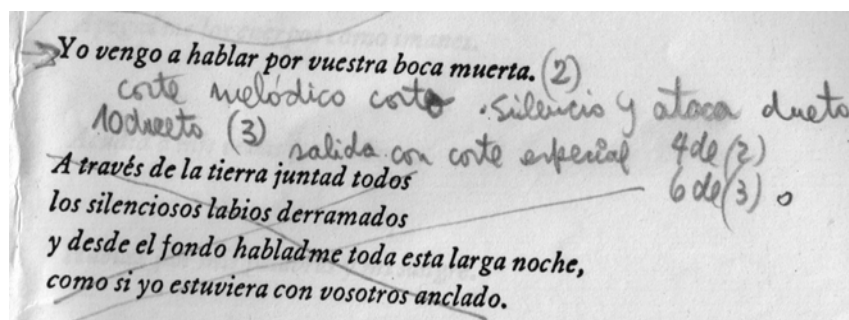 Yo vengo a hablar por vuestra boca muerta. (2)
corte melódico corto . silencio y ataca dueto
10 dueto (3) salida con corte especial 4 de (2)
6 de (3) o
A través de la tierra juntad todos
los silenciosos labios derramados
y desde el fondo habladme toda esta larga noche,
como si yo estuviera con vosotros anclado.